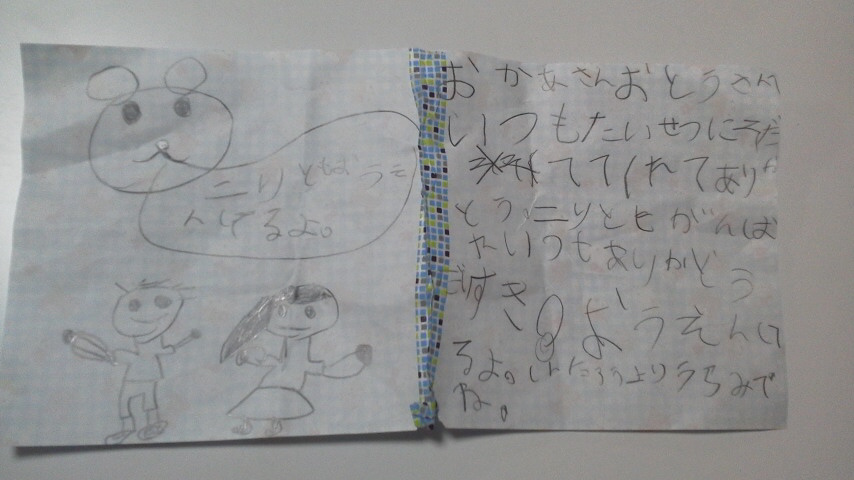 ニリともおうえ
んしてるよ。
おかあさんおとうさん
いつもたいせつにそだ
てて くれてありが
とう。ニリとヒがんば
いつもありがどう
すき
おうえんして
るよ。しんたろうよりうらみで
ね。